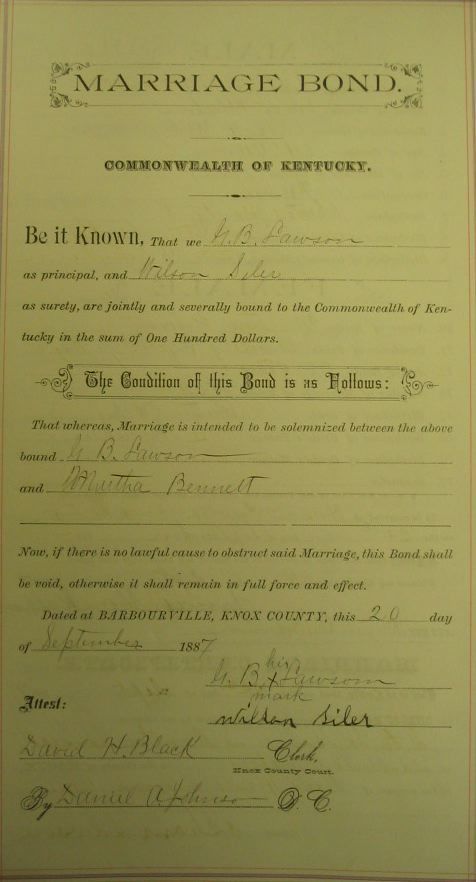 MARRIAGE BOND.
COMMONWEALTH OF KENTUCKY.
Be it Known, That we G. B. Lawson
as principal, and Wilson Siler
as surety, are jointly and severally bound to the Commonwealth of Ken-
tucky in the sum of One Hundred Dollars.
The Condition of this Bond is as Follows:
That whereas, Marriage is intended to be solemnized between the above
bound G B. Lawson
and Martha Bennett
Now, if there is no lawful cause to obstruct said Marriage, this Bond shall
be void, otherwise it shall remain in full force and effect.
Dated at BARBOURVILLE, KNOX COUNTY, this 20 day
of September 1887
his
G. B x Lawson
mark
Attest:
Wilson Siler
David H. Black Clerk,
Knox County Court.
By Daniel A Johnson D. C.